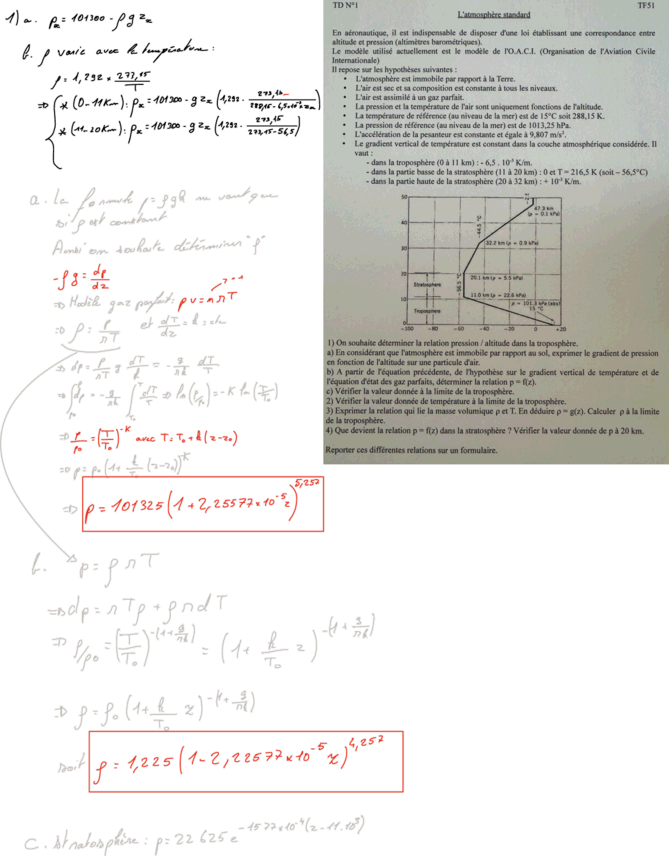 1) a. p_x = 101300 - ρ g z_x
b. ρ varie avec la température :
ρ = 1,292 × 273,15 / T
⇒ * (0-11Km) : p_x = 101300 - g z_x (1,292 · 273,15 / (288,15 - 6,5·10⁻³ z_x))
* (11-20Km) : p_x = 101300 - g z_x (1,292 · 273,15 / (273,15 - 56,5))
a. La formule p = ρgh ne vaut que
si ρ est constant
Aussi on souhaite déterminer "ρ"
-ρg = dp/dz
⇒ Modèle gaz parfait : p v = n r T
⇒ ρ = p/rT et dT/dz = k = cte
⇒ dp = - p/rT g dT/k = - g/rk dT/T
⇒ ∫ dp/p = - g/rk ∫ dT/T ⇒ ln(p/p₀) = -K ln(T/T₀)
⇒ p/p₀ = (T/T₀)^-K avec T = T₀ + k(z-z₀)
⇒ p = p₀ (1 + k/T₀ (z-z₀))^-K
⇒ p = 101325 (1 + 2,25577×10⁻⁵ z)^5,257
b. p = ρ r T
⇒ dp = r T ρ + ρ r dT
⇒ ρ/ρ₀ = (T/T₀)^-(1 + g/rk) = (1 + k/T₀ z)^-(1 + g/rk)
⇒ ρ = ρ₀ (1 + k/T₀ z)^-(1 + g/rk)
soit ρ = 1,225 (1 - 2,22577×10⁻⁵ z)^4,257
c. Stratosphère : p = 22 625 e^-1577×10⁻⁴(z-11·10³)
TD N°1 TF51
L'atmosphère standard
En aéronautique, il est indispensable de disposer d'une loi établissant une correspondance entre
altitude et pression (altimètres barométriques).
Le modèle utilisé actuellement est le modèle de l'O.A.C.I. (Organisation de l'Aviation Civile
Internationale)
Il repose sur les hypothèses suivantes :
• L'atmosphère est immobile par rapport à la Terre.
• L'air est sec et sa composition est constante à tous les niveaux.
• L'air est assimilé à un gaz parfait.
• La pression et la température de l'air sont uniquement fonctions de l'altitude.
• La température de référence (au niveau de la mer) est de 15°C soit 288,15 K.
• La pression de référence (au niveau de la mer) est de 1013,25 hPa.
• L'accélération de la pesanteur est constante et égale à 9,807 m/s².
• Le gradient vertical de température est constant dans la couche atmosphérique considérée. Il
vaut :
- dans la troposphère (0 à 11 km) : - 6,5 . 10⁻³ K/m.
- dans la partie basse de la stratosphère (11 à 20 km) : 0 et T = 216,5 K (soit – 56,5°C)
- dans la partie haute de la stratosphère (20 à 32 km) : + 10⁻³ K/m.
50
40
30
20
10
0
-100 -80 -60 -40 -20 0 +20
47.3 km
(p = 0.1 kPa)
-44.5 °C
32.2 km (p = 0.9 kPa)
-56.5 °C
20.1 km (p = 5.5 kPa)
Stratosphere
11.0 km (p = 22.6 kPa)
p = 101.3 kPa (abs)
15 °C
Troposphere
1) On souhaite déterminer la relation pression / altitude dans la troposphère.
a) En considérant que l'atmosphère est immobile par rapport au sol, exprimer le gradient de pression
en fonction de l'altitude sur une particule d'air.
b) A partir de l'équation précédente, de l'hypothèse sur le gradient vertical de température et de
l'équation d'état des gaz parfaits, déterminer la relation p = f(z).
c) Vérifier la valeur donnée à la limite de la troposphère.
2) Vérifier la valeur donnée de température à la limite de la troposphère.
3) Exprimer la relation qui lie la masse volumique ρ et T. En déduire ρ = g(z). Calculer ρ à la limite
de la troposphère.
4) Que devient la relation p = f(z) dans la stratosphère ? Vérifier la valeur donnée de p à 20 km.
Reporter ces différentes relations sur un formulaire.